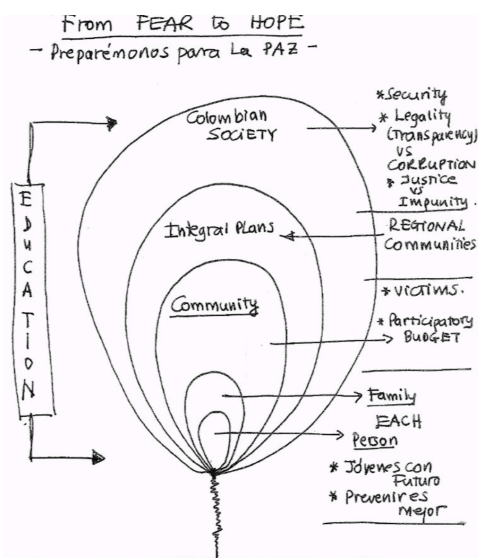 From FEAR to HOPE
- Preparémonos para La PAZ -
EDUCATION
Colombian
SOCIETY
Integral Plans
Community
*Security
* Legality
(Transparency)
VS
CORRUPTION
* Justice
vs
Impunity.
REGIONAL
Communities
* VICTIMS.
* Participatory
BUDGET
Family
EACH
Person
* Jóvenes con
Futuro
* Prevenir es
mejor